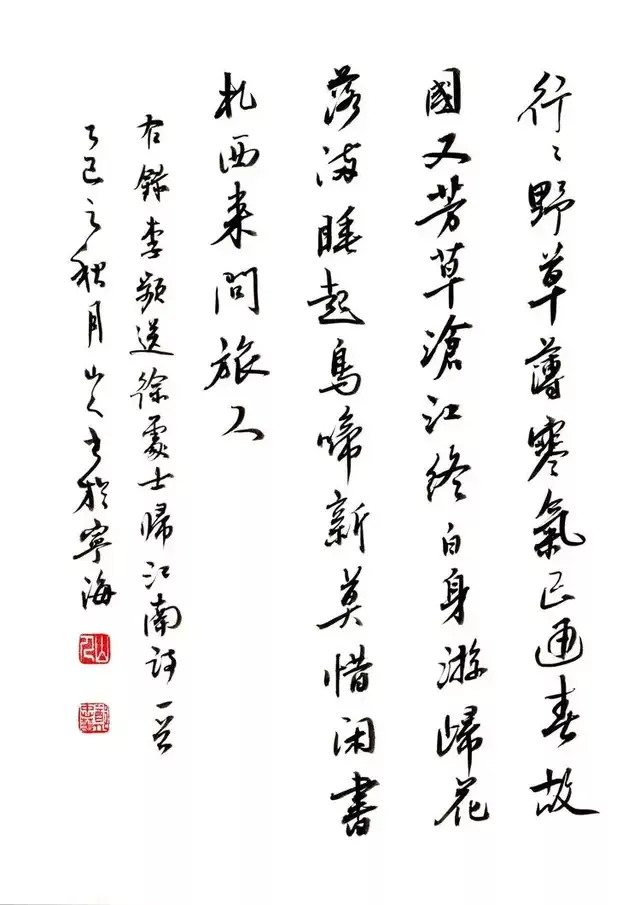 行〻野草薄寒氣已通春故
國又芳草滄江終白身游歸花
落滿睡起鳥啼新莫惜闲書
札西来問旅人
右錄李頻送徐處士歸江南詩一首
乙巳之秋月山人書於寧海
山人